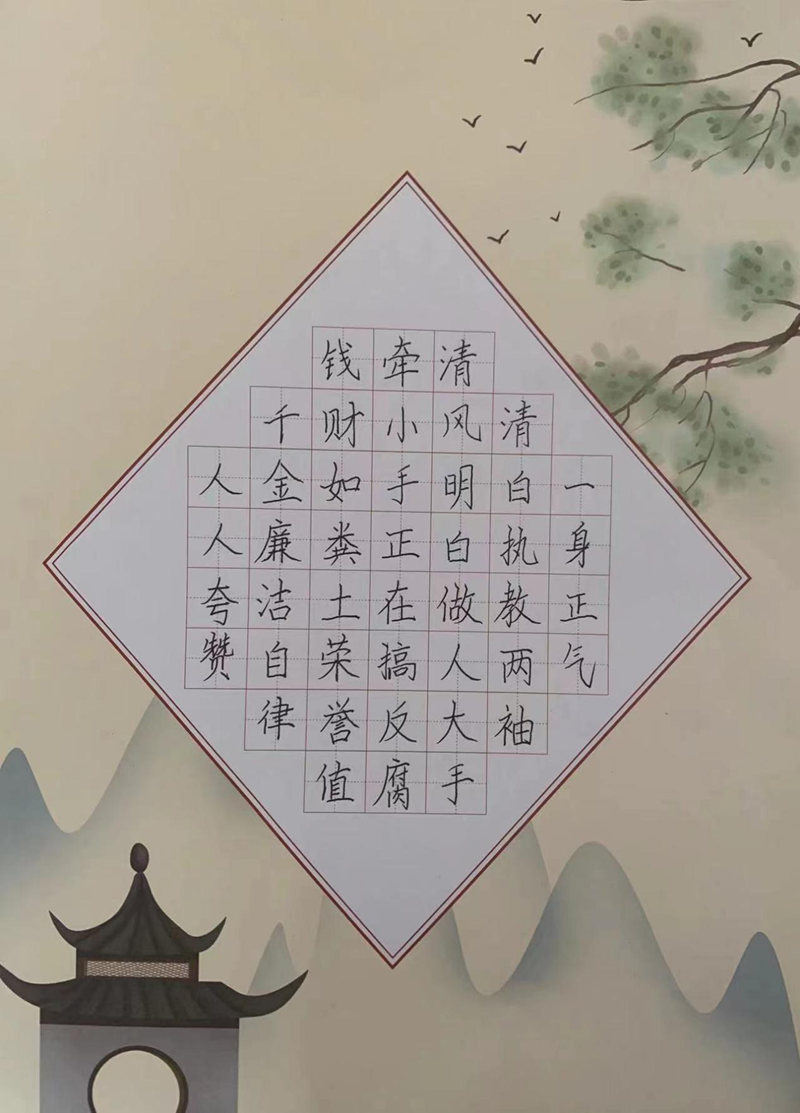 一身正气
清白执教两袖
清风明白做人大手
牵小手正在搞反腐
钱财如粪土荣誉值
千金廉洁自律
人人夸赞